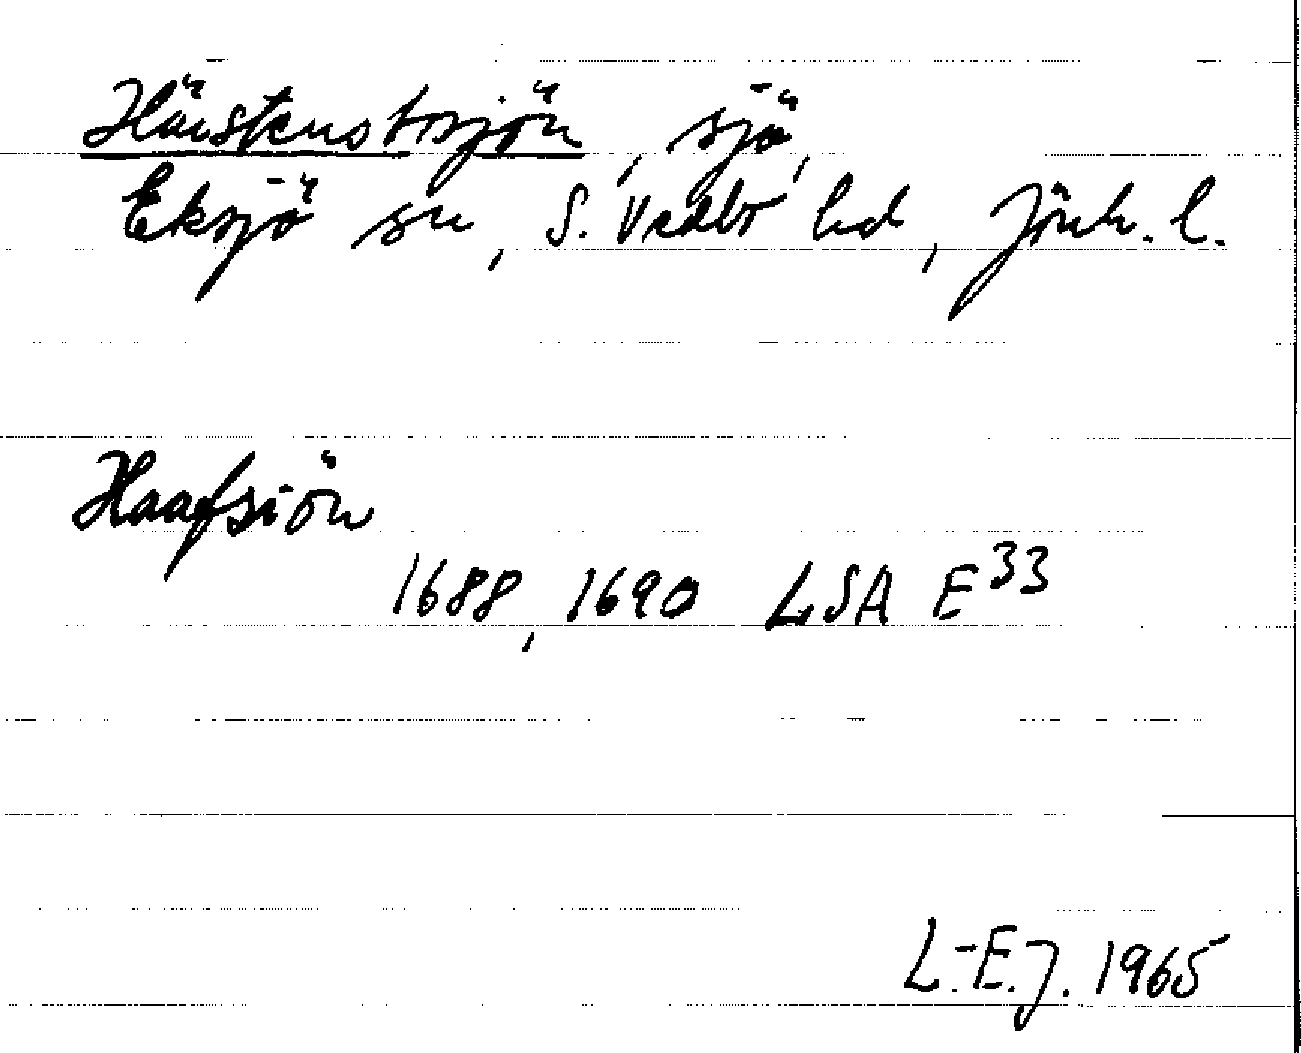 Havstenstorsjön, sjö,
Eksjö sn, S. Vedbo hd, Jönk. l.
Haafsiön
1688, 1690 LSA E 33
L.-E.J. 1965